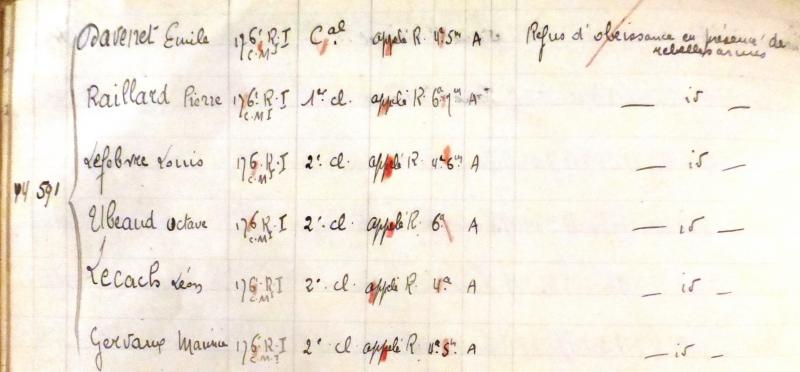 Davenet Emile 176e R.I C.M.I Cal appelé R. 4a 5m A Refus d'obéissance en présence de
rebelles armés
Raillard Pierre 176e R.I C.M.I 1re cl. appelé R. 6a 7m A — id —
Lefebvre Louis 176e R.I C.M.I 2e cl. appelé R. 4a 6m A — id —
44 591 Ubeaud Octave 176e R.I C.M.I 2e cl. appelé R. 6a A — id —
Lecach Léon 176e R.I C.M.I 2e cl. appelé R. 4a A — id —
Gervaux Maurice 176e R.I C.M.I 2e cl appelé R. 5m A — id —